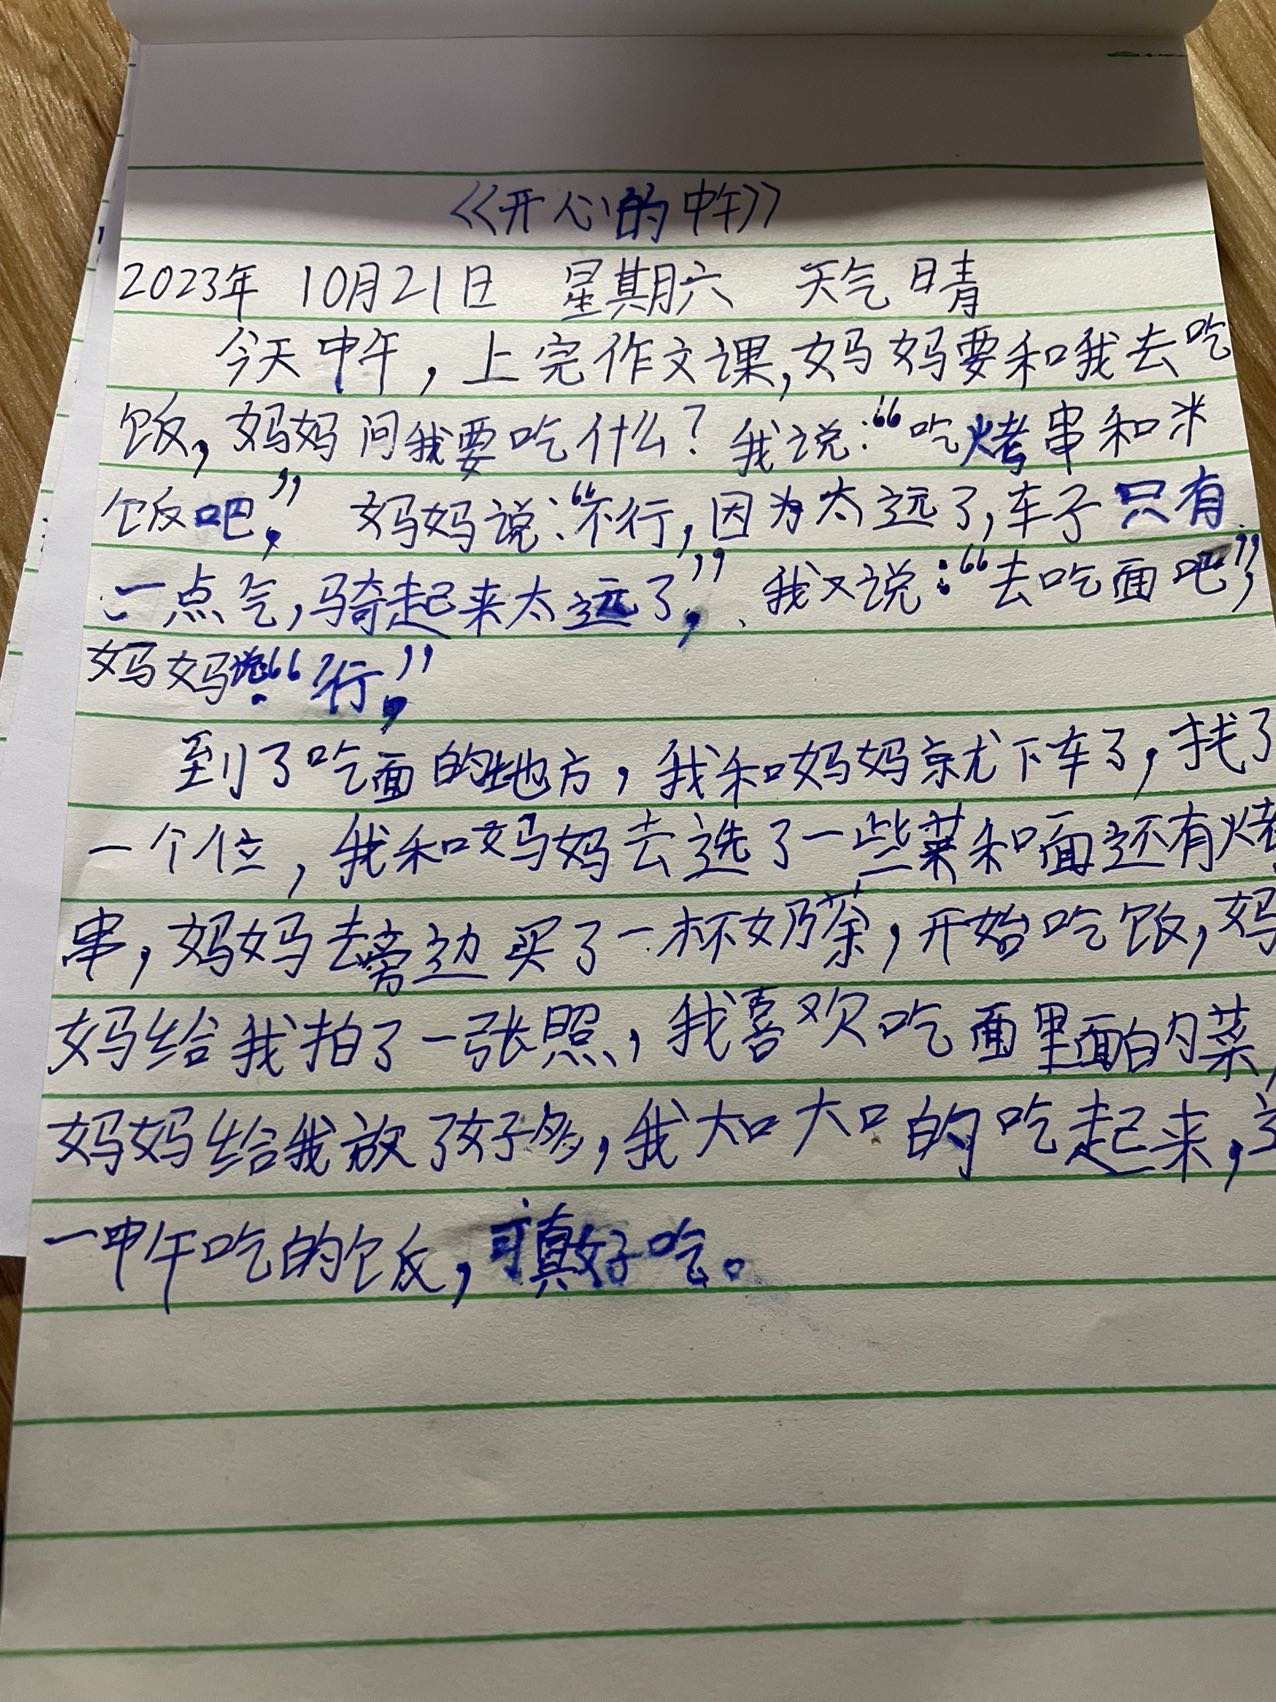 《开心的中午》
2023年 10月21日 星期六 天气 晴
今天中午，上完作文课，妈妈要和我去吃
饭，妈妈问我要吃什么？我说：“吃烤串和米
饭吧，” 妈妈说：“不行，因为太远了，车子只有
一点气，骑起来太远了，” 我又说：“去吃面吧”，
妈妈说：“行，”
到了吃面的地方，我和妈妈就下车了，找了
一个位，我和妈妈去选了一些菜和面还有烤
串，妈妈去旁边买了一杯奶茶，开始吃饭，妈
妈给我拍了一张照，我喜欢吃面里面的菜，
妈妈给我放了好多，我大口大口的吃起来，
一中午吃的饭，可真好吃。